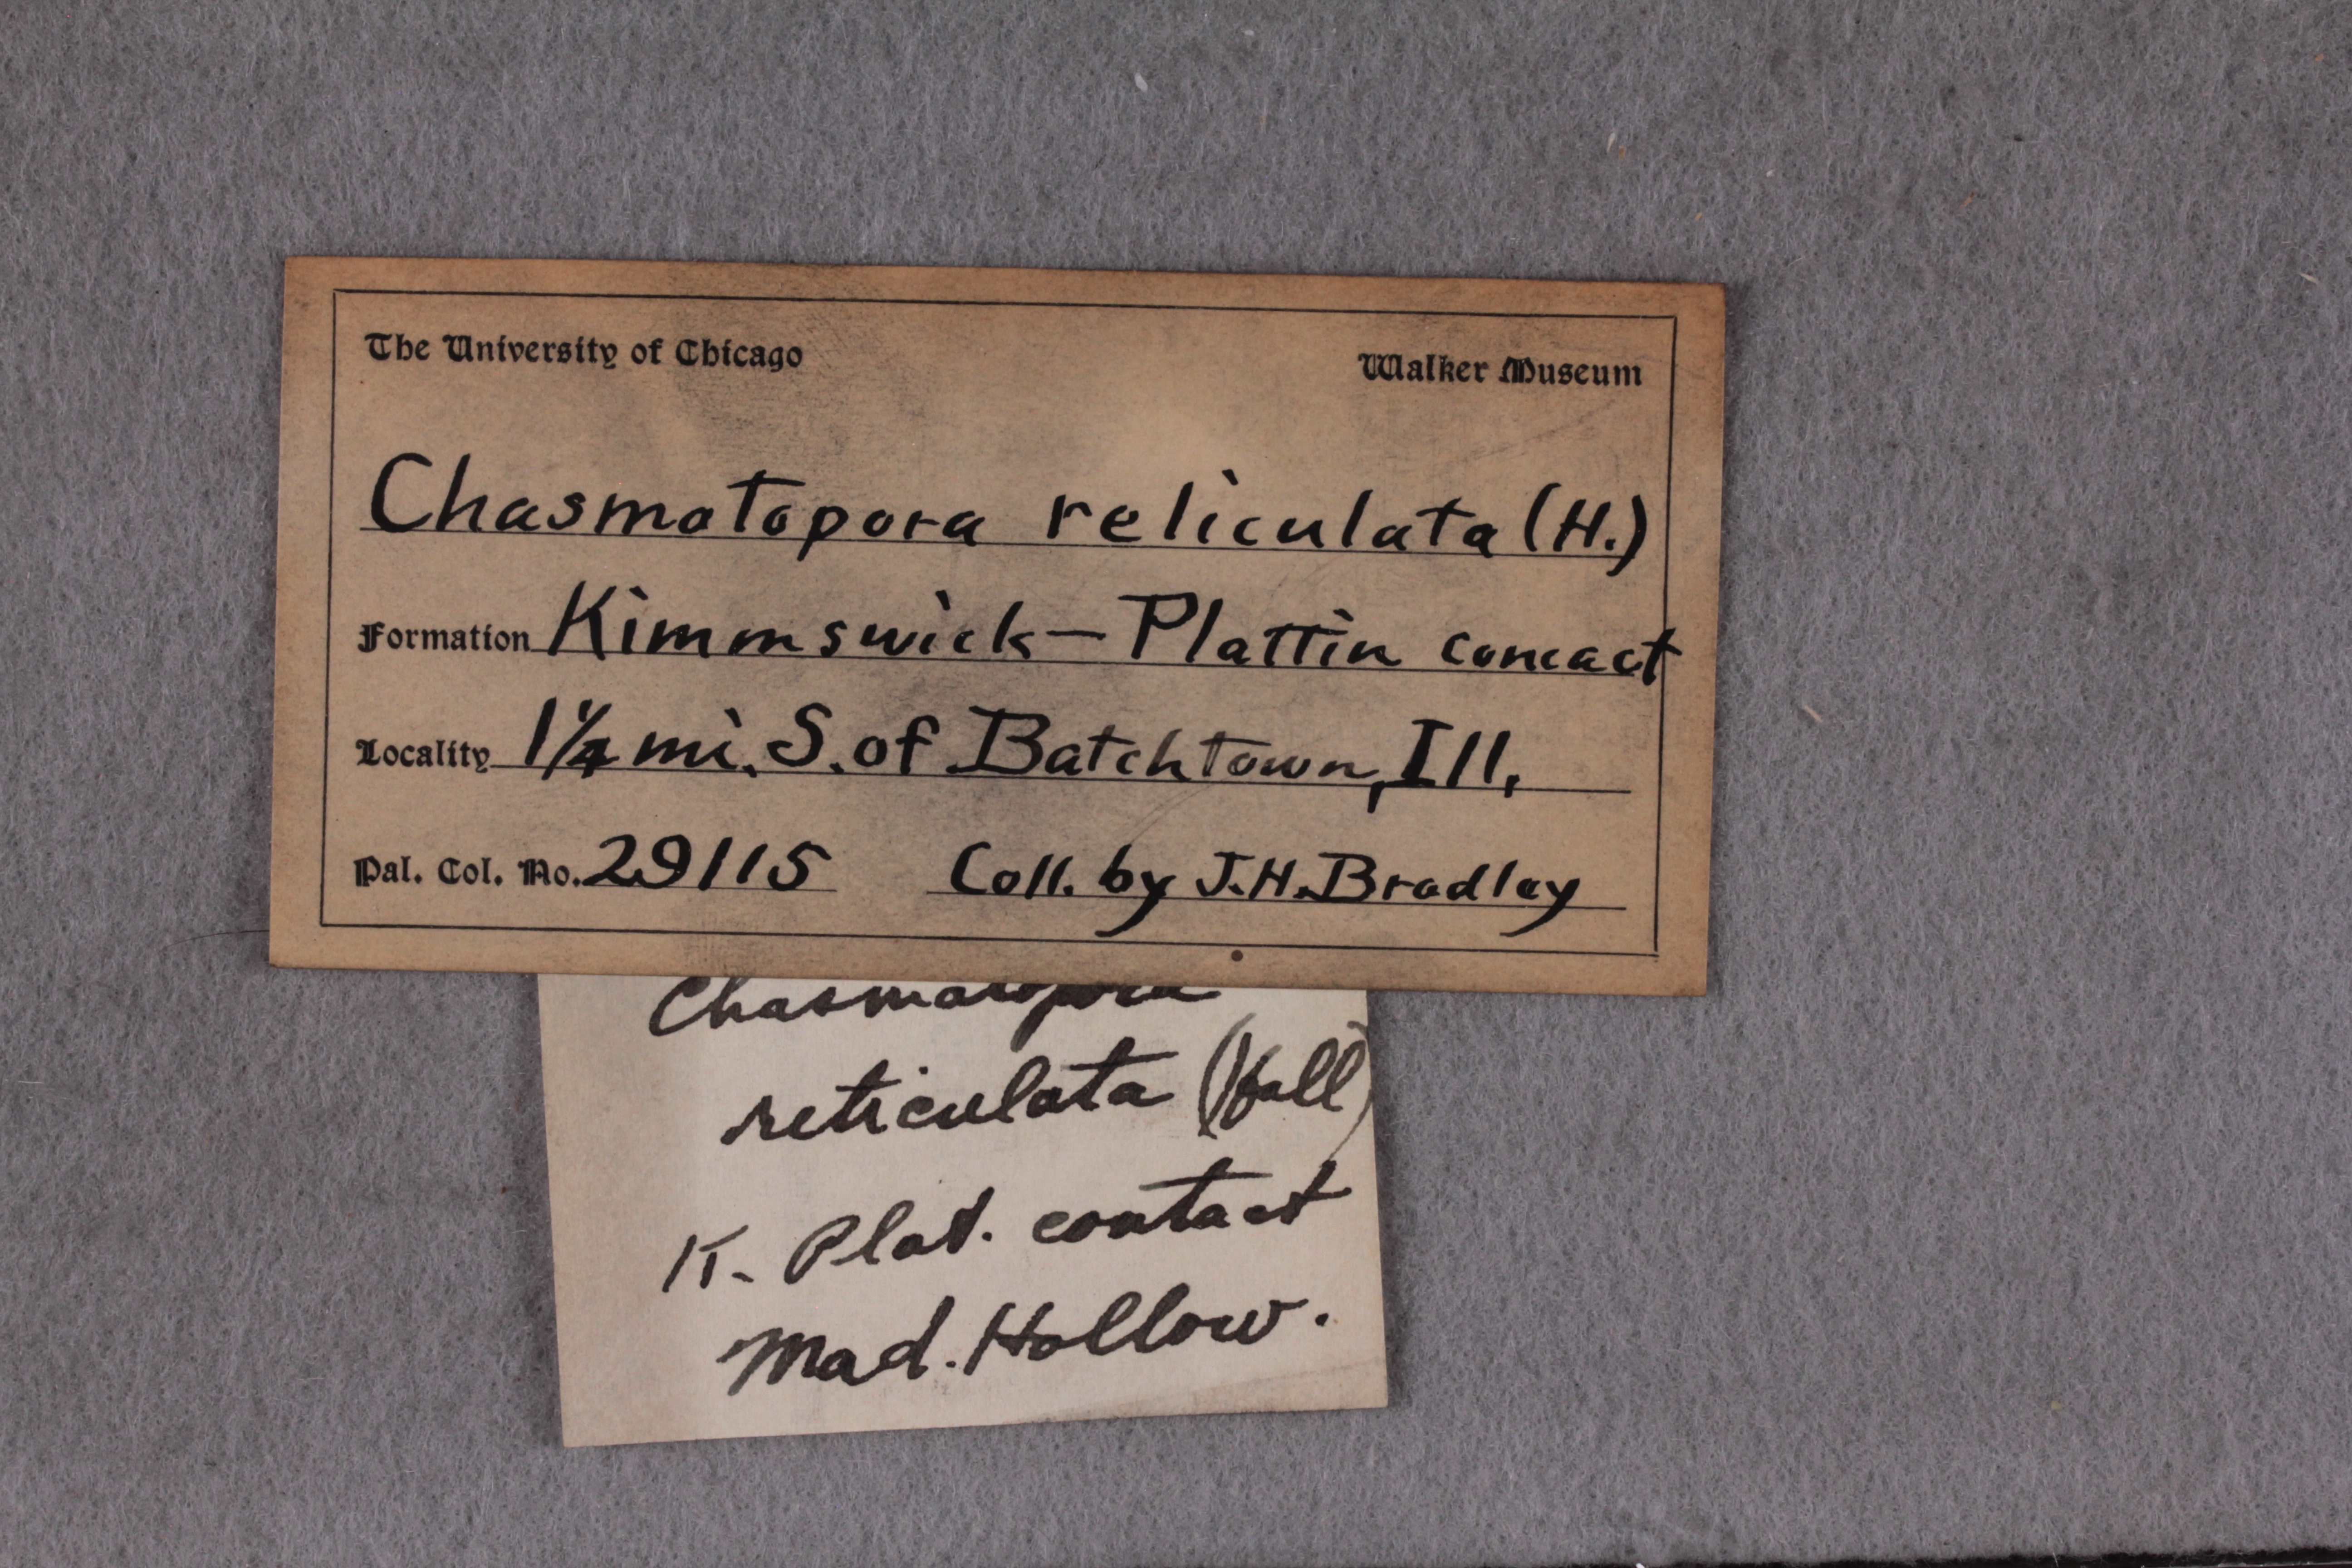 The University of Chicago Walker Museum
Chasmatopora reliculata (H.)
Formation Kimmswick - Plattin concact
Locality 1 1/4 mi. S. of Batchtown, Ill.
Pal. Col. No. 29115 Coll. by J.H. Bradley
Chasmatopora
reticulata (Hall)
K. Plat. contact
Mad. Hollow.